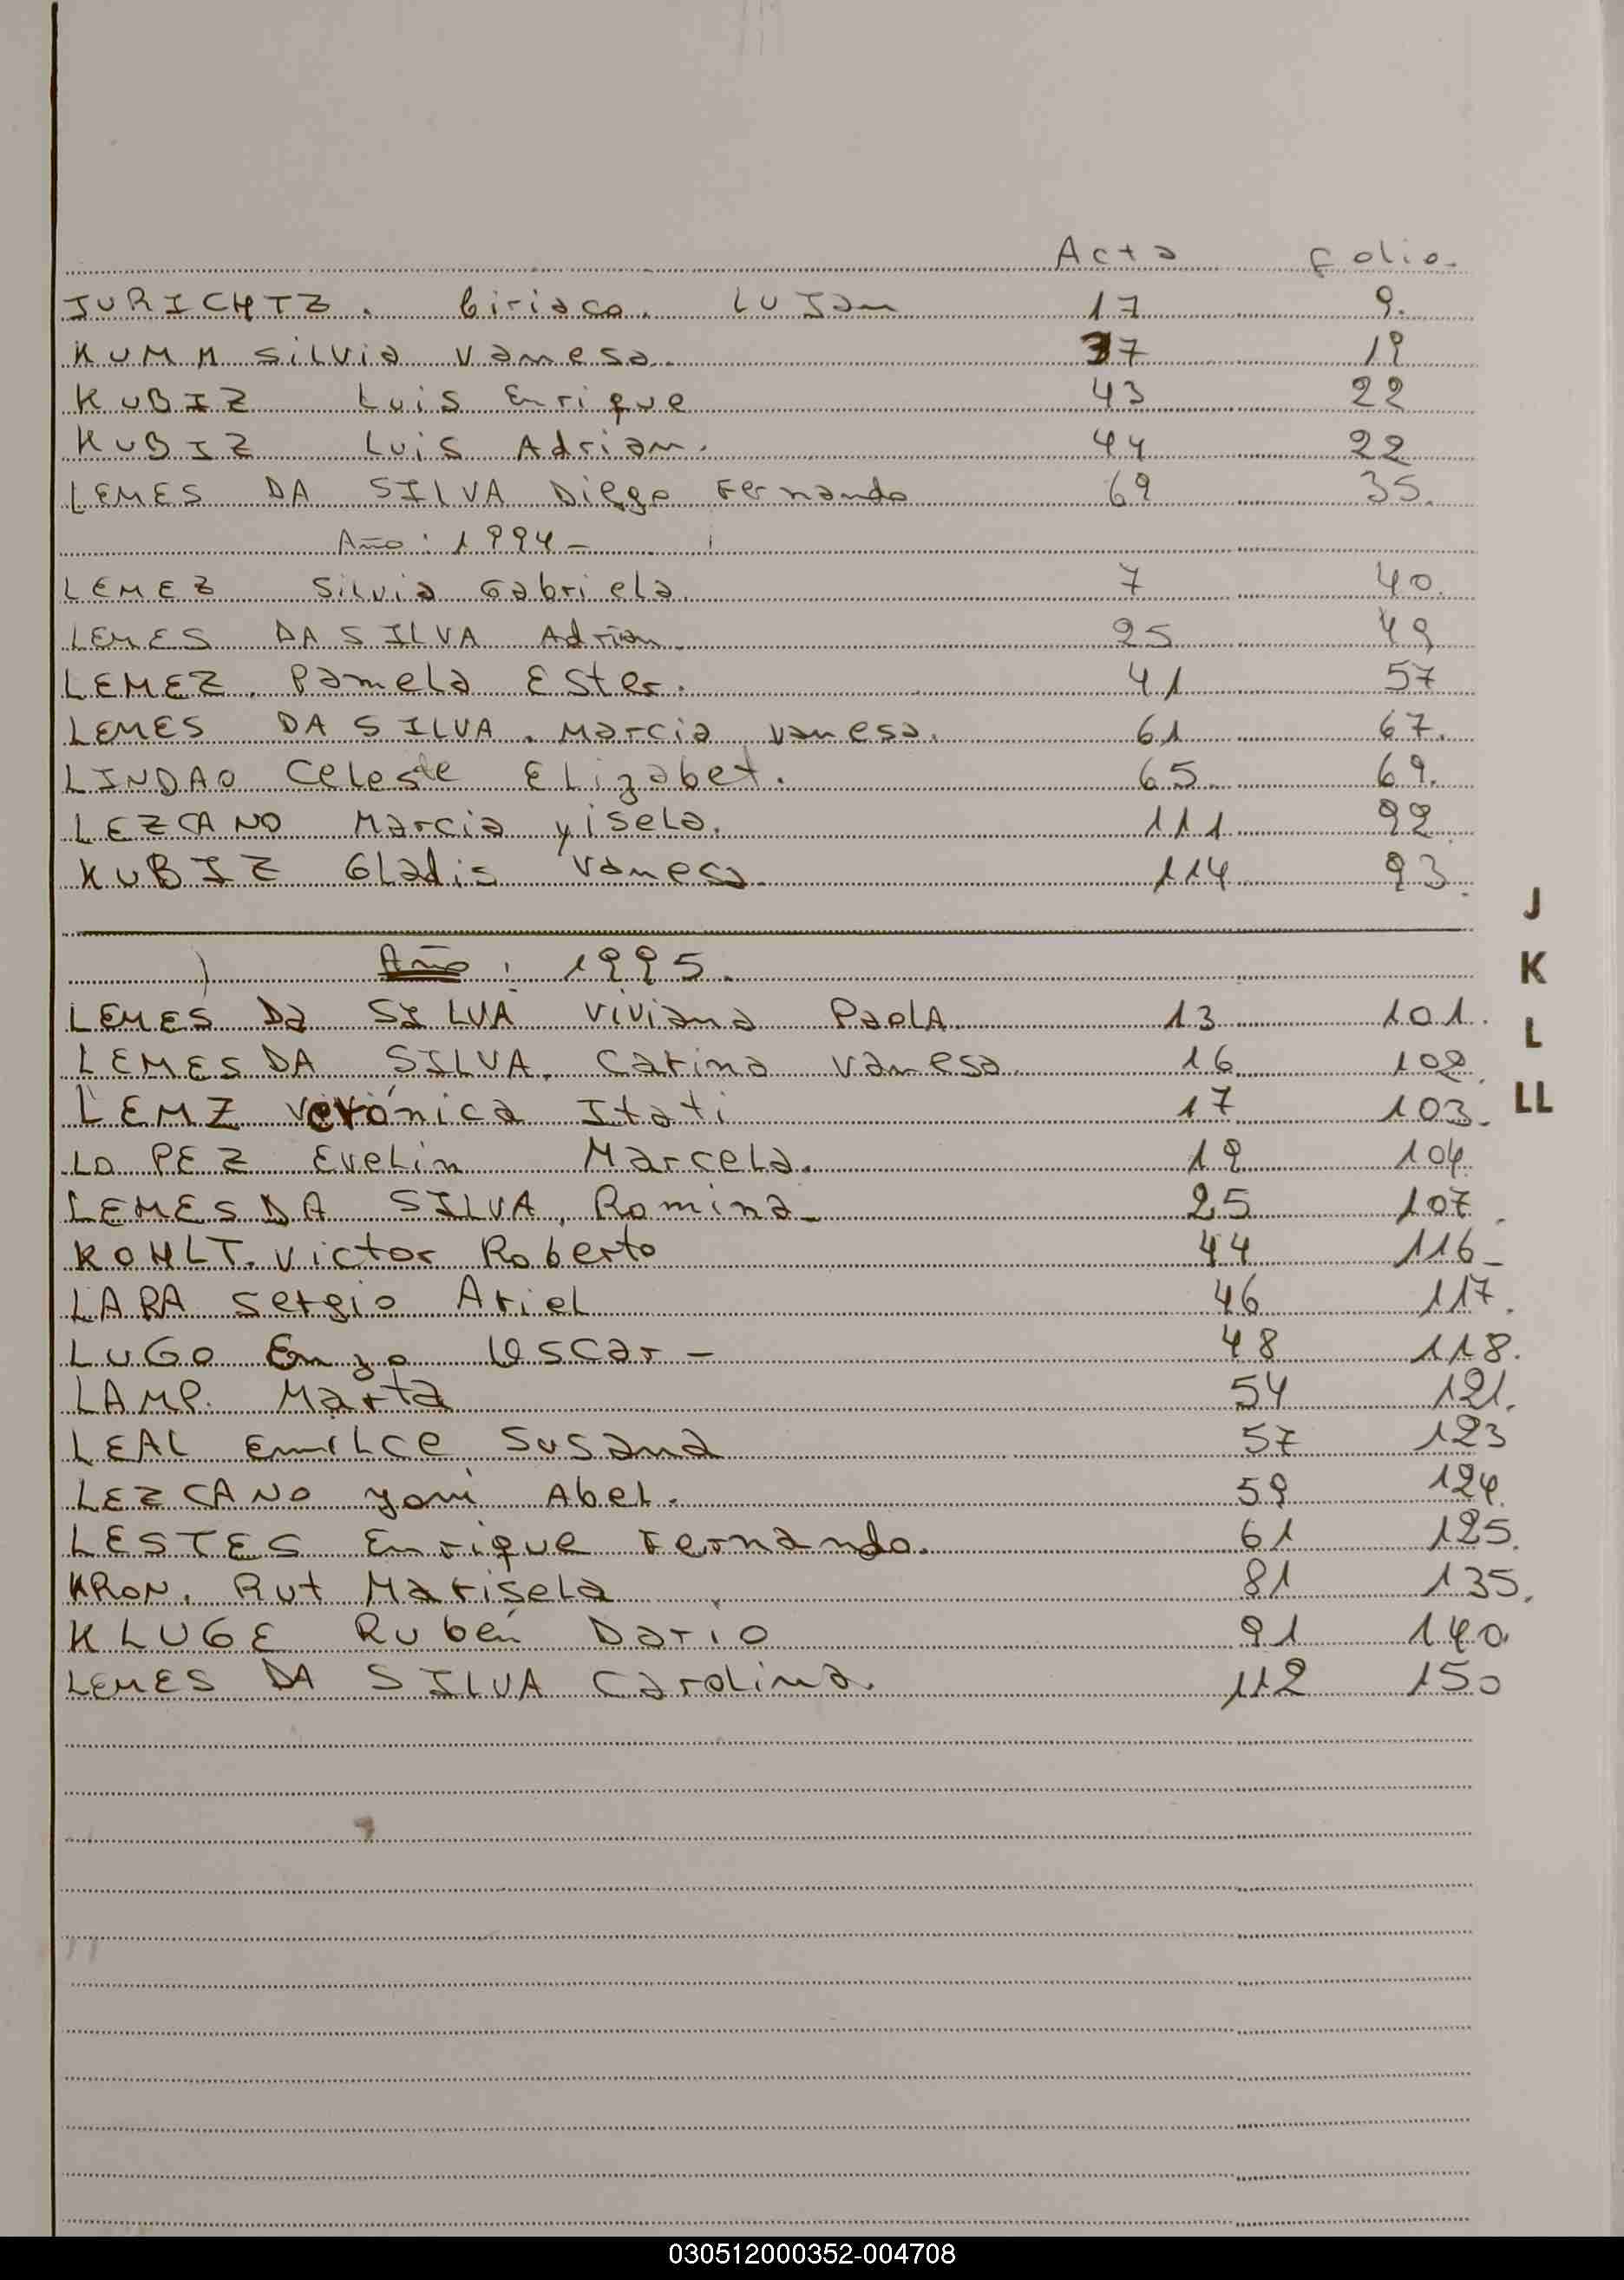 Acta Folio.
JURICHTZ. Ciriaco. LUJan 17 9.
KUMM Silvia Vanesa. 37 19
KUBIZ Luis Enrique 43 22
KUBIZ Luis Adrian. 44 22
LEMES DA SILVA Diego Fernando 69 35.
Año: 1994-
LEMEZ Silvia Gabriela. 7 40.
LEMES DA SILVA Adrian. 25 49
LEMEZ. Pamela Ester. 41 57
LEMES DA SILVA. Marcia Vanesa. 61 67.
LINDAO Celeste Elizabet. 65 69.
LEZCANO Marcia yisela. 111 92
KUBIZ Gladis Vanesa. 114 93.
Año: 1995.
LEMES Da SILVA Viviana PaolA. 13 101.
LEMES DA SILVA. Carina Vanesa. 16 102.
LEMZ Verónica Itati 17 103.
LOPEZ Evelin Marcela. 19 104.
LEMES DA SILVA. Romina- 25 107.
KOHLT. Victor Roberto 44 116-
LARA Sergio Ariel 46 117.
LUGO Enzo Oscar- 48 118.
LAMP. Marta 54 121.
LEAL Emilce Susana 57 123
LEZCANO yoni Abel. 59 124.
LESTES Enrique Fernando. 61 125.
KRON. Rut Marisela 81 135.
KLUGE Rubén Dario 91 140.
LEMES DA SILVA Carolina. 112 150
J
K
L
LL
030512000352-004708